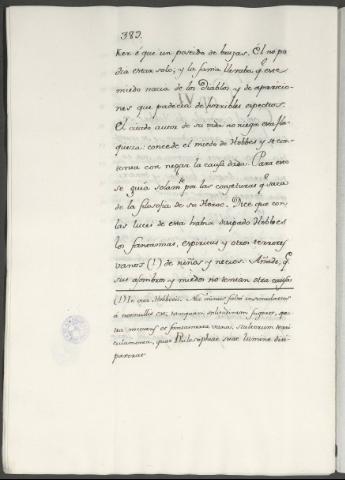 383.
ker ó que un poseido de brujas. Él no po
dia estar solo; y la fama llevaba q.e este
miedo nacia de los Diablos y de aparicio
nes que padecia de horribles espectros.
El citado autor de su vida no niega esta fla
queza: concede el miedo de Hobbes y se con
tenta con negar la causa dada. Para esto
se guia solam.te por las conjeturas q.e saca
de la filosofia de su Heroe. Dice que con
las luces de esta habia disipado Hobbes
los fantasmas, espiritus y otros terrores
vanos (1) de niños y necios. Añade, q.e
sus asombros y miedos no tenian otra causa
(1) In vita Hobbesii. Nec minus falso insimulatus
á nonnullis est, tanquam solitudinem fugeret,
metuens et fantasmata vana, stultorum terri
culamenta, quae Philosophiae suae lumine dissi
paverat